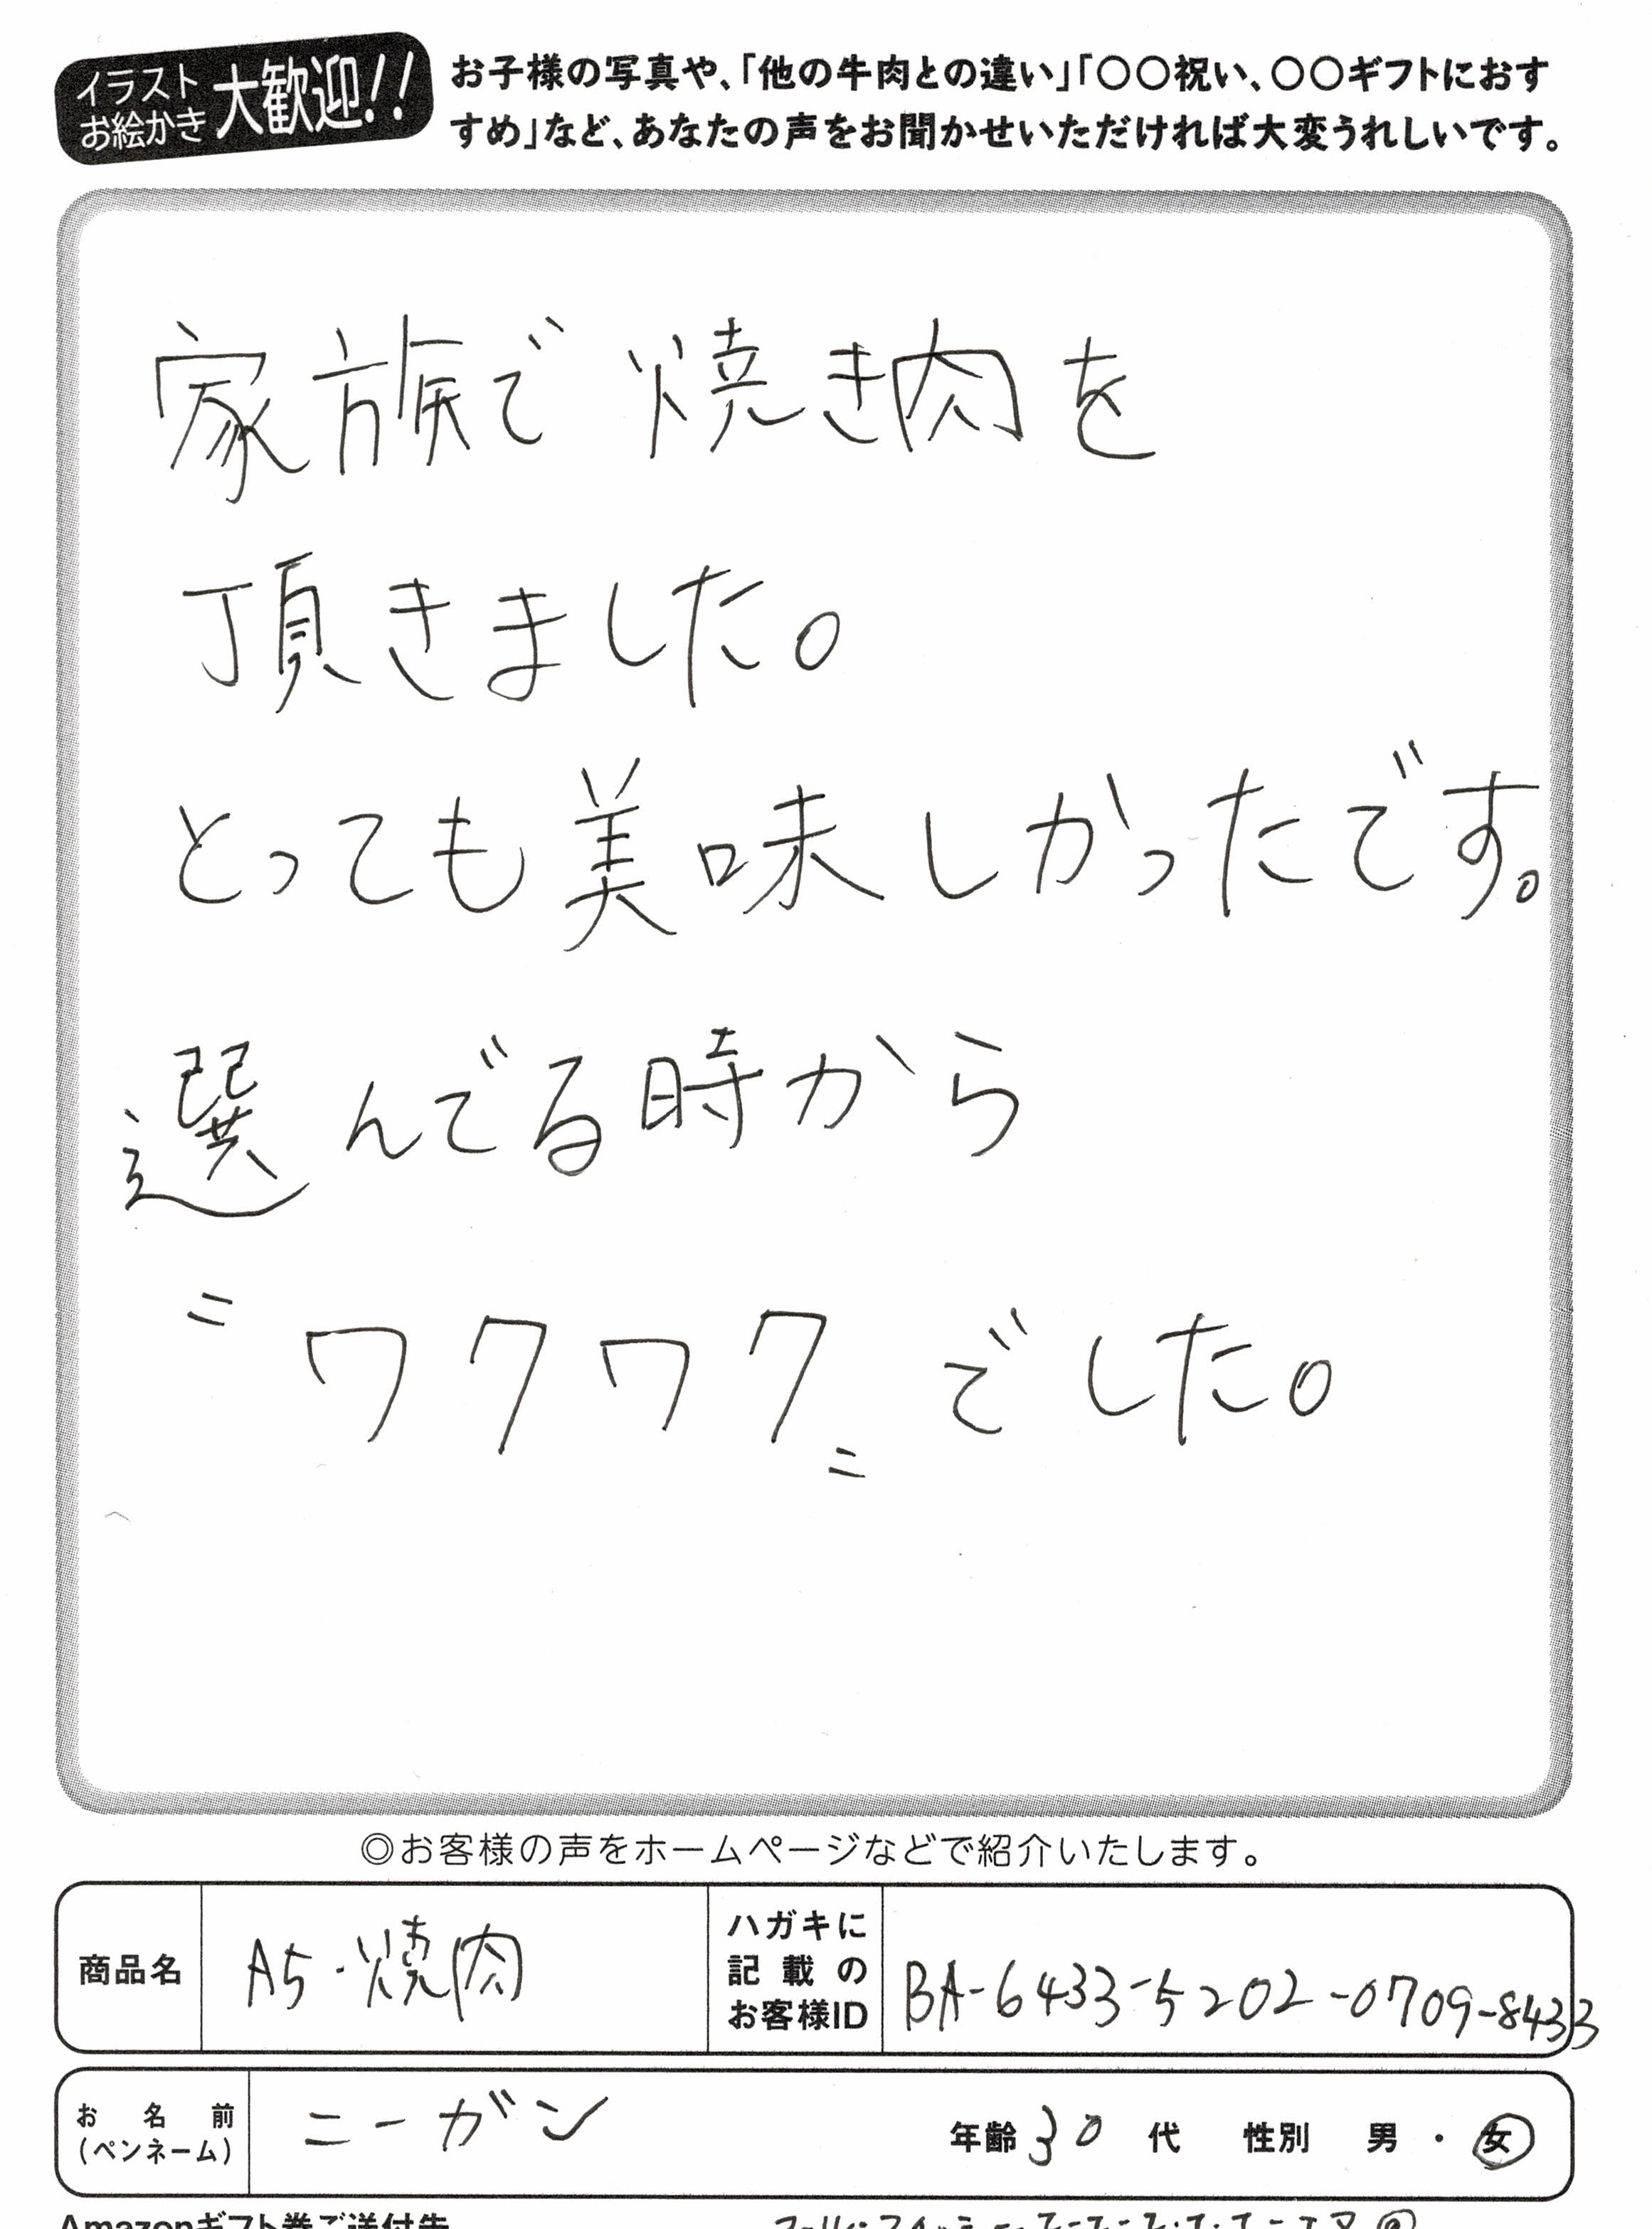 イラスト
お絵かき
大歓迎!!
お子様の写真や、「他の牛肉との違い」「〇〇祝い、〇〇ギフトにおす
すめ」など、あなたの声をお聞かせいただければ大変うれしいです。
家族で焼き肉を
頂きました。
とっても美味しかったです。
選んでる時から
"ワクワク"でした。
◎お客様の声をホームページなどで紹介いたします。
商品名
A5・焼肉
ハガキに
記載の
お客様ID
BA-6433-5202-0709-8433
お名前
(ペンネーム)
ニーガン
年齢 30 代 性別 男・女
Amazonギフト券ご送付先